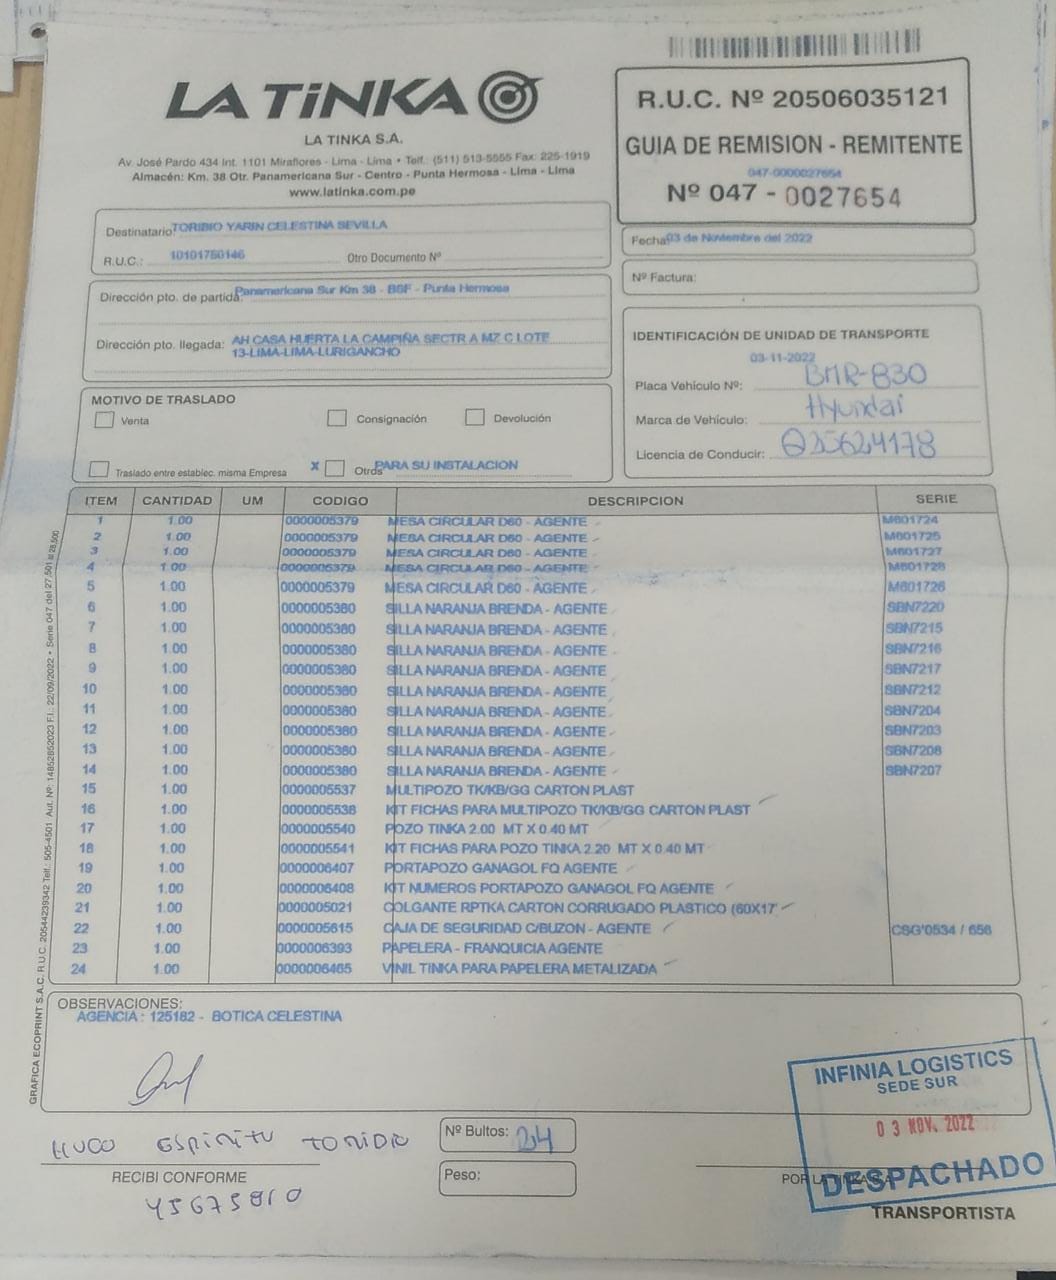 LA TiNKA
LA TINKA S.A.
Av. José Pardo 434 Int. 1101 Miraflores - Lima - Lima • Telf.: (511) 513-5555 Fax: 225-1919
Almacén: Km. 38 Otr. Panamericana Sur - Centro - Punta Hermosa - Lima - Lima
www.latinka.com.pe
R.U.C. Nº 20506035121
GUIA DE REMISION - REMITENTE
047-0000027654
Nº 047 - 0027654
Destinatario TORIBIO YARIN CELESTINA SEVILLA
R.U.C.: 10101750146 Otro Documento Nº
Fecha: 03 de Noviembre del 2022
Nº Factura:
Dirección pto. de partida: Panamericana Sur Km 38 - BSF - Punta Hermosa
Dirección pto. llegada: AH CASA HUERTA LA CAMPIÑA SECTR A MZ C LOTE
13-LIMA-LIMA-LURIGANCHO
IDENTIFICACIÓN DE UNIDAD DE TRANSPORTE
03-11-2022
Placa Vehículo Nº: BMR-830
Marca de Vehículo: Hyundai
Licencia de Conducir: Q25624178
MOTIVO DE TRASLADO
Venta Consignación Devolución
Traslado entre establec. misma Empresa X Otros PARA SU INSTALACION
ITEM CANTIDAD UM CODIGO DESCRIPCION SERIE
1 1.00 0000005379 MESA CIRCULAR D60 - AGENTE M601724
2 1.00 0000005379 MESA CIRCULAR D60 - AGENTE M601725
3 1.00 0000005379 MESA CIRCULAR D60 - AGENTE M601727
4 1.00 0000005379 MESA CIRCULAR D60 - AGENTE M601728
5 1.00 0000005379 MESA CIRCULAR D60 - AGENTE M601726
6 1.00 0000005380 SILLA NARANJA BRENDA - AGENTE SBN7220
7 1.00 0000005380 SILLA NARANJA BRENDA - AGENTE SBN7215
8 1.00 0000005380 SILLA NARANJA BRENDA - AGENTE SBN7216
9 1.00 0000005380 SILLA NARANJA BRENDA - AGENTE SBN7217
10 1.00 0000005380 SILLA NARANJA BRENDA - AGENTE SBN7212
11 1.00 0000005380 SILLA NARANJA BRENDA - AGENTE SBN7204
12 1.00 0000005380 SILLA NARANJA BRENDA - AGENTE SBN7203
13 1.00 0000005380 SILLA NARANJA BRENDA - AGENTE SBN7208
14 1.00 0000005380 SILLA NARANJA BRENDA - AGENTE SBN7207
15 1.00 0000005537 MULTIPOZO TK/KB/GG CARTON PLAST
16 1.00 0000005538 KIT FICHAS PARA MULTIPOZO TK/KB/GG CARTON PLAST
17 1.00 0000005540 POZO TINKA 2.00 MT X 0.40 MT
18 1.00 0000005541 KIT FICHAS PARA POZO TINKA 2.20 MT X 0.40 MT
19 1.00 0000006407 PORTAPOZO GANAGOL FQ AGENTE
20 1.00 0000006408 KIT NUMEROS PORTAPOZO GANAGOL FQ AGENTE
21 1.00 0000005021 COLGANTE RPTKA CARTON CORRUGADO PLASTICO (60X17
22 1.00 0000005615 CAJA DE SEGURIDAD C/BUZON - AGENTE CSG'0534 / 656
23 1.00 0000006393 PAPELERA - FRANQUICIA AGENTE
24 1.00 0000006465 VINIL TINKA PARA PAPELERA METALIZADA
GRAFICA ECOPRINT S.A.C. R.U.C. 20544239342 Telf.: 505-4501 Aut. Nº: 14852852023 F.I.: 22/09/2022 • Serie 047 del 27,501 al 28,500
OBSERVACIONES:
AGENCIA : 125182 - BOTICA CELESTINA
INFINIA LOGISTICS
SEDE SUR
03 NOV. 2022
DESPACHADO
HUGO ESPIRITU TORIBIO
Nº Bultos: 24
RECIBI CONFORME
Peso:
45675810
POR LA TINKA S.A.
TRANSPORTISTA